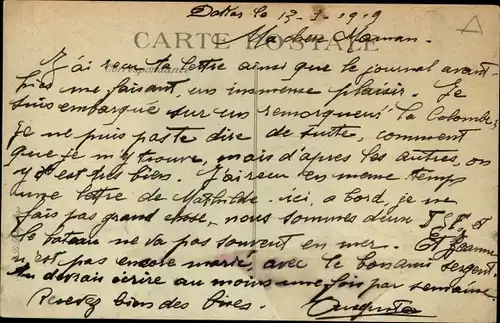 Dakar le 13-3-1919
CARTE POSTALE
Ma chère Maman.
Correspondance
J'ai reçu ta lettre ainsi que le journal avant
hier me faisant un immense plaisir. Je
suis embarqué sur un remorqueur "la Colombe"
je ne puis pas te dire de suite, comment
que je m'y trouve, mais d'après les autres, on
y est très bien. J'ai reçu en même temps
une lettre de Mathilde. ici, a bord, je ne
fais pas grand chose, nous sommes deux T.S.F. et
le bateau ne va pas souvent en mer. Et Jeanne
n'est pas encore marié, avec le bon ami sergent
tu devais écrire au moins une fois par semaine
Recevez bien des bises.